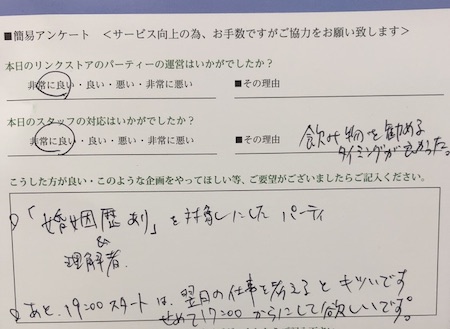 ■簡易アンケート ＜サービス向上の為、お手数ですがご協力をお願い致します＞
本日のリンクストアのパーティーの運営はいかがでしたか？
非常に良い・良い・悪い・非常に悪い ■その理由
本日のスタッフの対応はいかがでしたか？
非常に良い・良い・悪い・非常に悪い ■その理由 飲み物を勧める
タイミングが良かった。
こうした方が良い・このような企画をやってほしい等、ご要望がございましたらご記入ください。
「婚姻歴あり」を対象にしたパーティ
&
理解者.
あと、19:00スタートは、翌日の仕事を考えるとキツいです
せめて17:00からにして欲しいです。